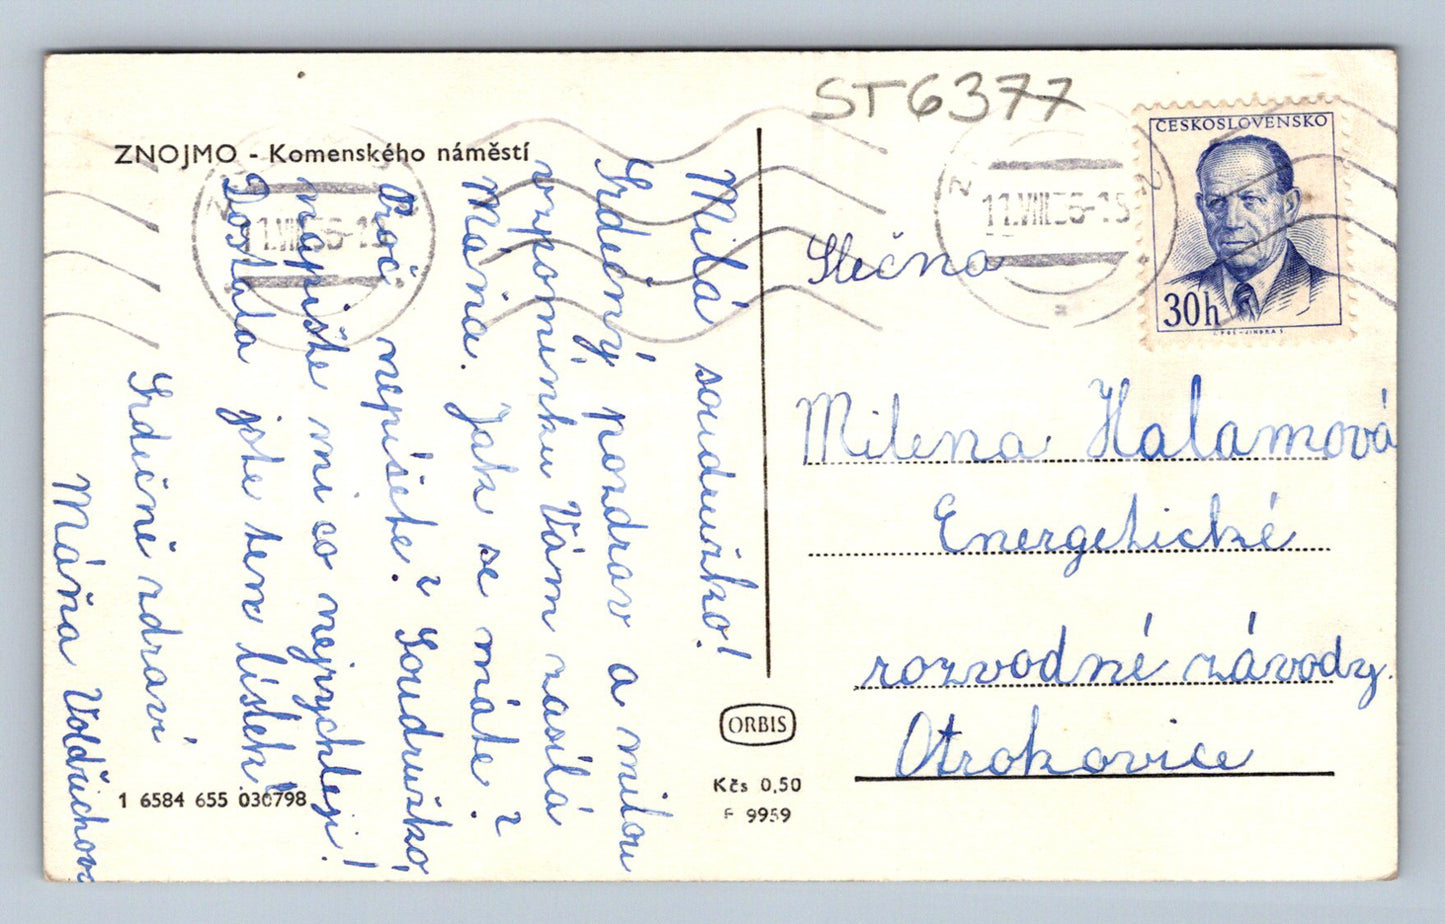 ST6377
ZNOJMO - Komenského náměstí
ČESKOSLOVENSKO
30h
11.VIII.56-15
11.VIII.56-15
Milá soudružko!
Srdečný pozdrav a milou
vzpomínku Vám zasílá
Máňa. Jak se máte?
Proč nepíšete? Soudružko,
napište mi co nejrychleji!
Dostala jste ten lístek?
Srdečně zdraví
Máňa Voldřichova
Slečna
Milena Halamová
Energetické
rozvodné závody.
Otrokovice
ORBIS
Kčs 0,50
F 9959
1 6584 655 030798